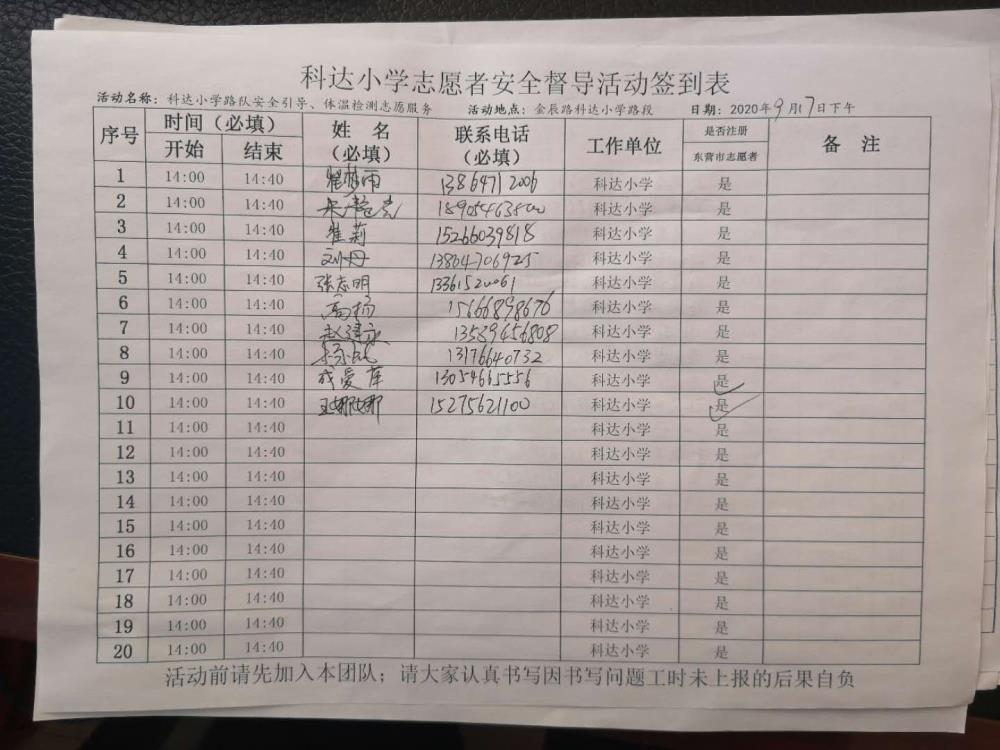 科达小学志愿者安全督导活动签到表
活动名称：科达小学路队安全引导、体温检测志愿服务 活动地点：金辰路科达小学路段 日期：2020年9月17日下午
序号 时间（必填） 姓 名（必填） 联系电话（必填） 工作单位 是否注册 备 注
开始 结束 东营市志愿者
1 14:00 14:40 13864712006 科达小学 是
2 14:00 14:40 科达小学 是
3 14:00 14:40 崔莉 15266039818 科达小学 是
4 14:00 14:40 刘丹 13864706925 科达小学 是
5 14:00 14:40 张志明 13361520061 科达小学 是
6 14:00 14:40 高杨 15666898676 科达小学 是
7 14:00 14:40 赵建永 13589456808 科达小学 是
8 14:00 14:40 13176640732 科达小学 是
9 14:00 14:40 成爱萍 13054665556 科达小学 是
10 14:00 14:40 王娜娜 15275621100 科达小学 是
11 14:00 14:40 科达小学 是
12 14:00 14:40 科达小学 是
13 14:00 14:40 科达小学 是
14 14:00 14:40 科达小学 是
15 14:00 14:40 科达小学 是
16 14:00 14:40 科达小学 是
17 14:00 14:40 科达小学 是
18 14:00 14:40 科达小学 是
19 14:00 14:40 科达小学 是
20 14:00 14:40 科达小学 是
活动前请先加入本团队；请大家认真书写因书写问题工时未上报的后果自负